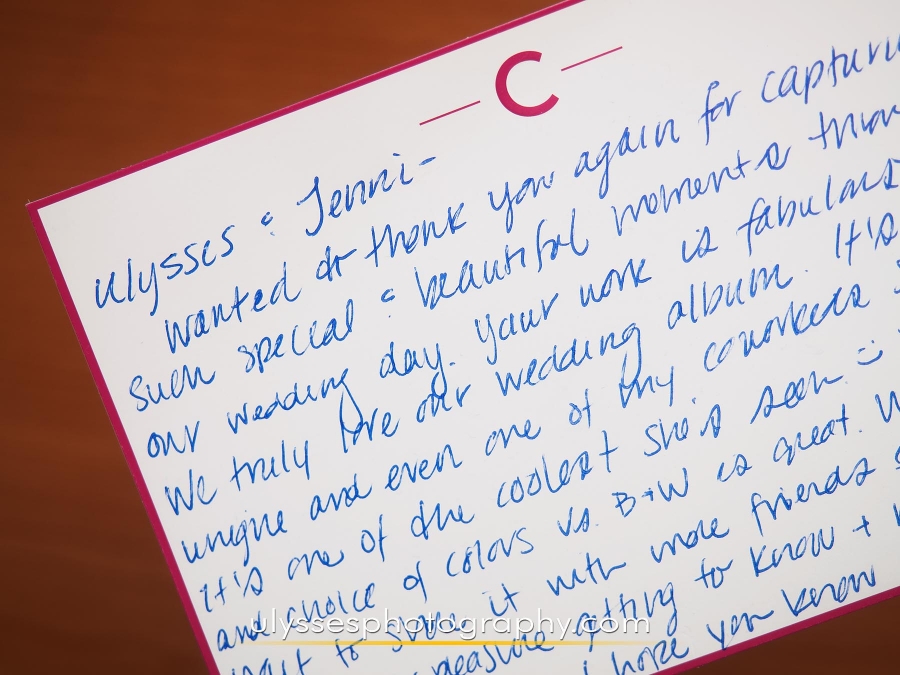 C
Ulysses & Jenni-
Wanted to thank you again for capturi
such special & beautiful moments thro
our wedding day. Your work is fabulous
We truly love our wedding album. It's
unique and even one of my coworkers
it's one of the coolest she's seen :)
and choice of colors vs. B+W is great. W
want to show it with more friends
pleasure getting to know +
I hope you know
ulyssesphotography.com